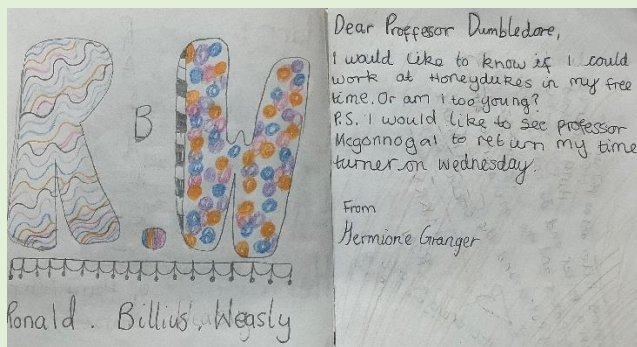 R B . W
Ronald . Billius . Weasly
Dear Proffesor Dumbledore,
I would like to know if I could
work at Honeydukes in my free
time. Or am I too young?
P.S. I would like to see professor
Mcgonnogal to return my time
turner on Wednesday.
From
Hermione Granger